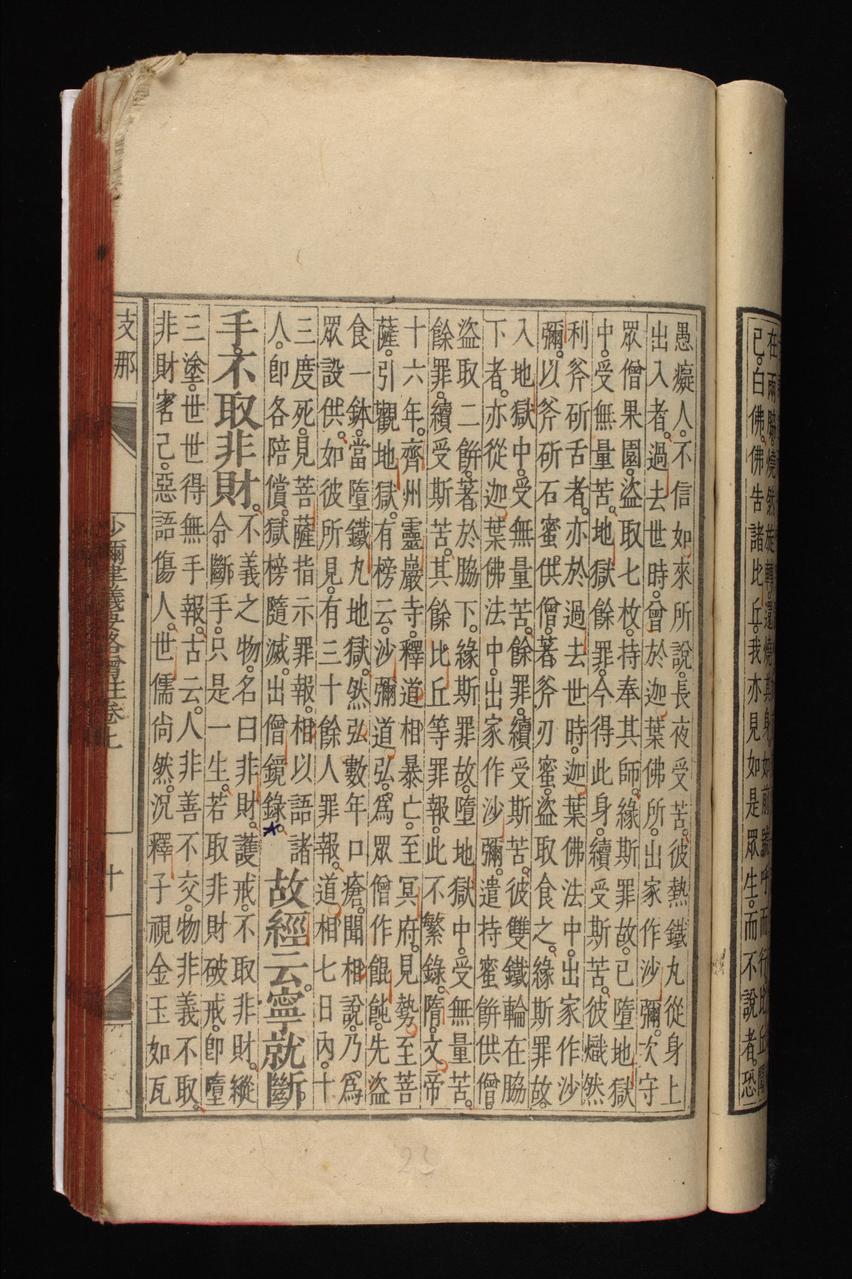 在兩腋燒然旋轉還燒其身如前號呼而行比丘聞
已。白佛。佛告諸比丘。我亦見如是眾生。而不說者。恐
愚癡人。不信如來所說。長夜受苦。彼熱鐵丸從身上
出入者。過去世時。曾於迦葉佛所。出家作沙彌。次守
眾僧果園。盜取七枚。持奉其師。緣斯罪故。已墮地獄
中。受無量苦。地獄餘罪。今得此身。續受斯苦。彼熾然
利斧斫舌者。亦於過去世時。迦葉佛法中。出家作沙
彌。以斧斫石蜜供僧。著斧刃蜜。盜取食之。緣斯罪故。
入地獄中。受無量苦。餘罪。續受斯苦。彼雙鐵輪在脇
下者。亦從迦葉佛法中。出家作沙彌。遣持蜜餅供僧。
盜取二餅。著於脇下。緣斯罪故。墮地獄中。受無量苦。
餘罪。續受斯苦。其餘比丘等罪報。此不繁錄。隋文帝
十六年。齊州靈巖寺。釋道相暴亡。至冥府。見勢至菩
薩。引觀地獄。有榜云。沙彌道弘。為眾僧作餛飩。先盜
食一鉢。當墮鐵丸地獄。然弘數年口瘡。聞相說。乃為
眾設供。如彼所見。有三十餘人罪報。道相七日內。十
三度死。見菩薩指示罪報。相以語諸
人。即各陪償。獄榜隨滅。出僧鏡錄。
故經云。寧就斷
手。不取非財。
不義之物。名曰非財。護戒。不取非財。縱
令斷手。只是一生。若取非財破戒。即墮
三塗。世世得無手報。古云。人非善不交。物非義不取。
非財害己。惡語傷人。世儒尚然。況釋子視金玉如瓦
支那
沙彌律儀要略增註卷上
十
23